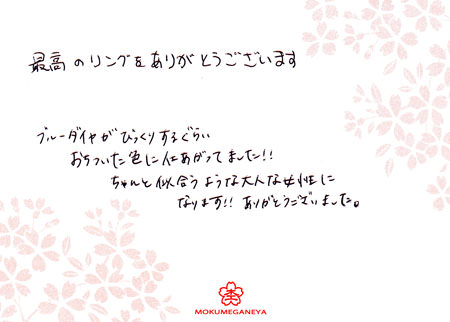 最高のリングをありがとうございます
ブルーダイヤがびっくりするぐらい
おちついた色に仕あがってました!!
ちゃんと似合うような大人な女性に
なります!! ありがとうございました。
MOKUMEGANEYA